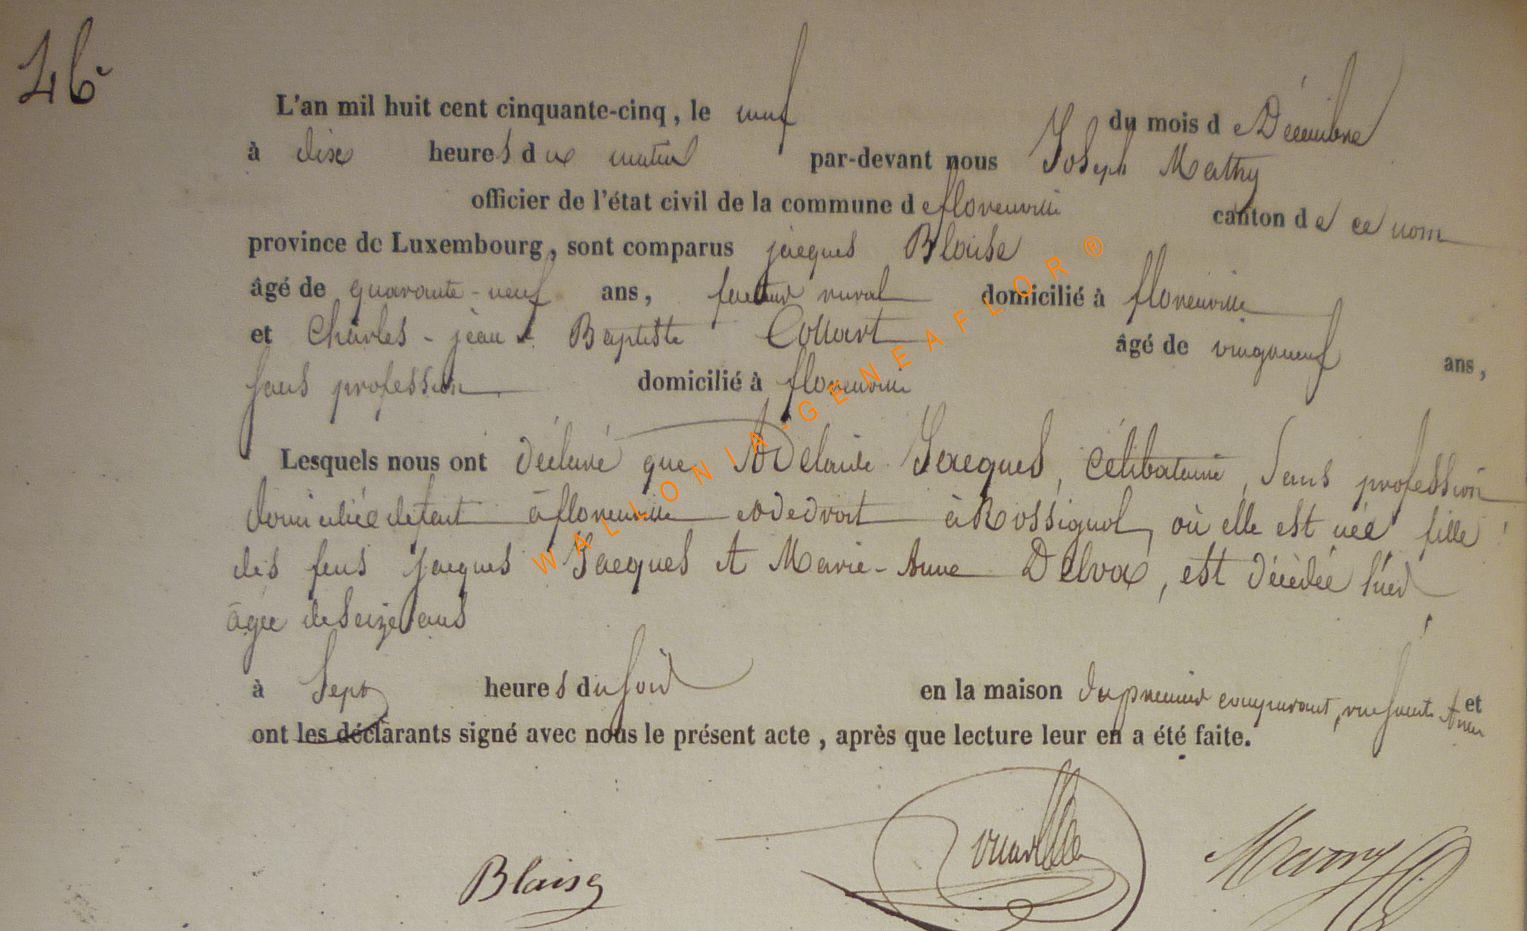 46e
L'an mil huit cent cinquante-cinq, le neuf du mois de Décembre
à dix heures du matin par-devant nous Joseph Mathy
officier de l'état civil de la commune de florenville canton de ce nom
province de Luxembourg, sont comparus jacques Blaise
âgé de quarante-neuf ans, facteur rural domicilié à florenville
et Charles-jean Baptiste Collart âgé de vingtneuf ans,
sans profession domicilié à florenville
Lesquels nous ont déclaré que Adelaide Jacques, célibataire, sans profession
domiciliée defait à florenville et de droit à Rossignol, où elle est née fille
des feus jacques Jacques et Marie-Anne Delvax, est décédée hier
âgée de seize ans
à sept heures du soir en la maison du premier comparant, rue sainte Anne et
ont les déclarants signé avec nous le présent acte, après que lecture leur en a été faite.
Blaise
WALLONIA-GENEAFLOR®